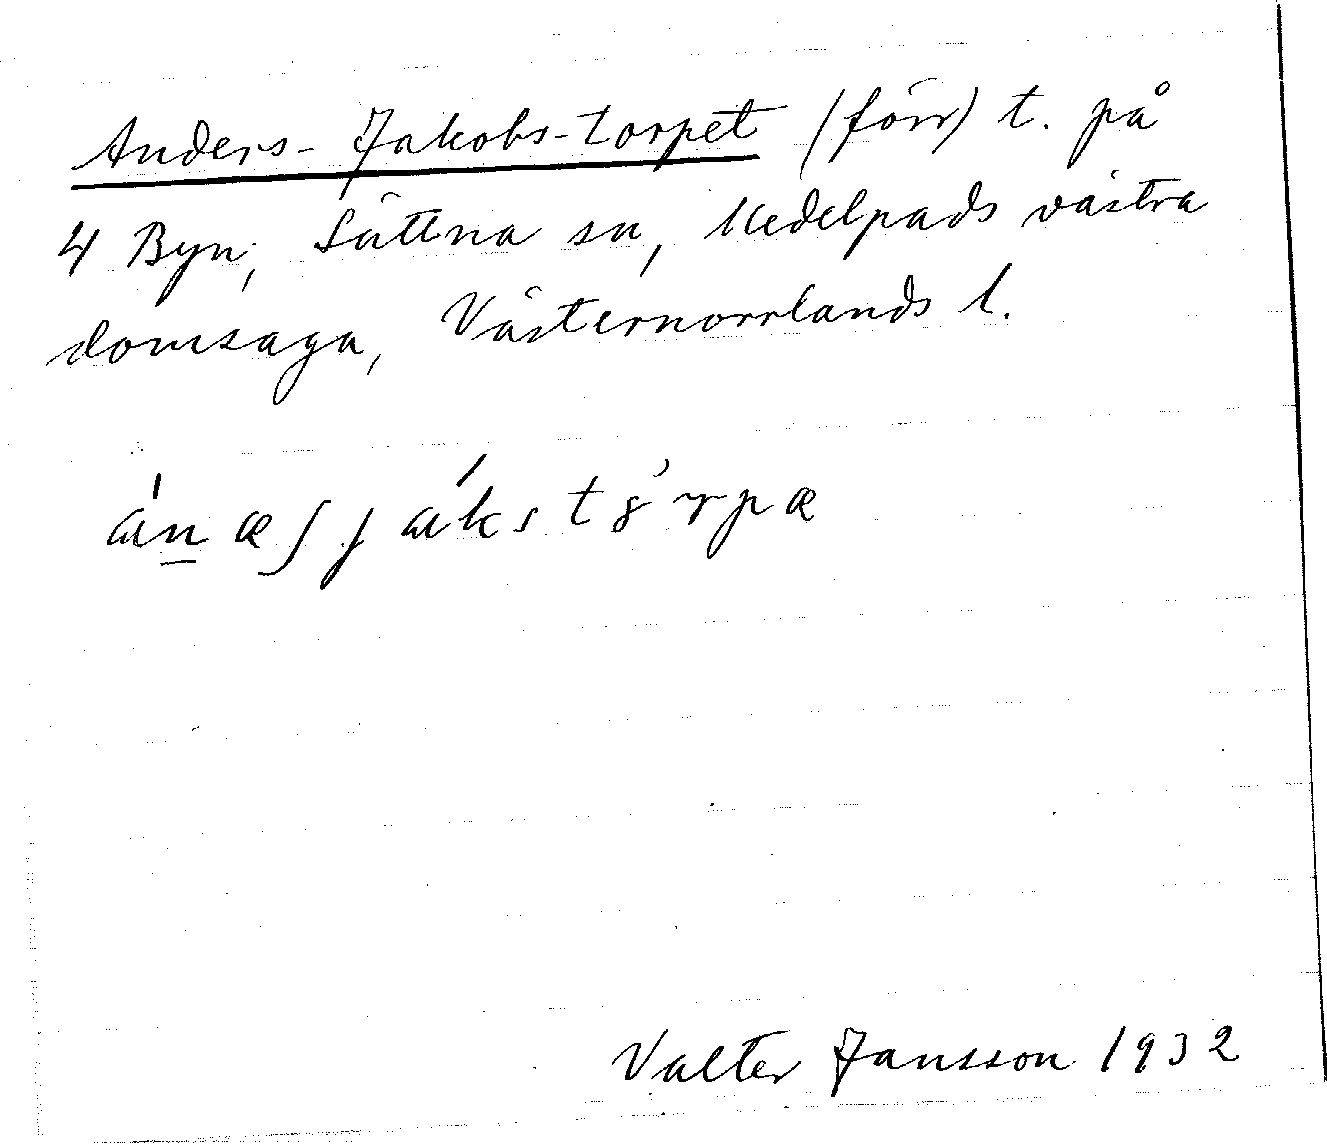 Anders-Jakobs-torpet (förr) t. på
4 Byn, Sättna sn, Medelpads västra
domsaga, Västernorrlands l.
Valter Jansson 1932